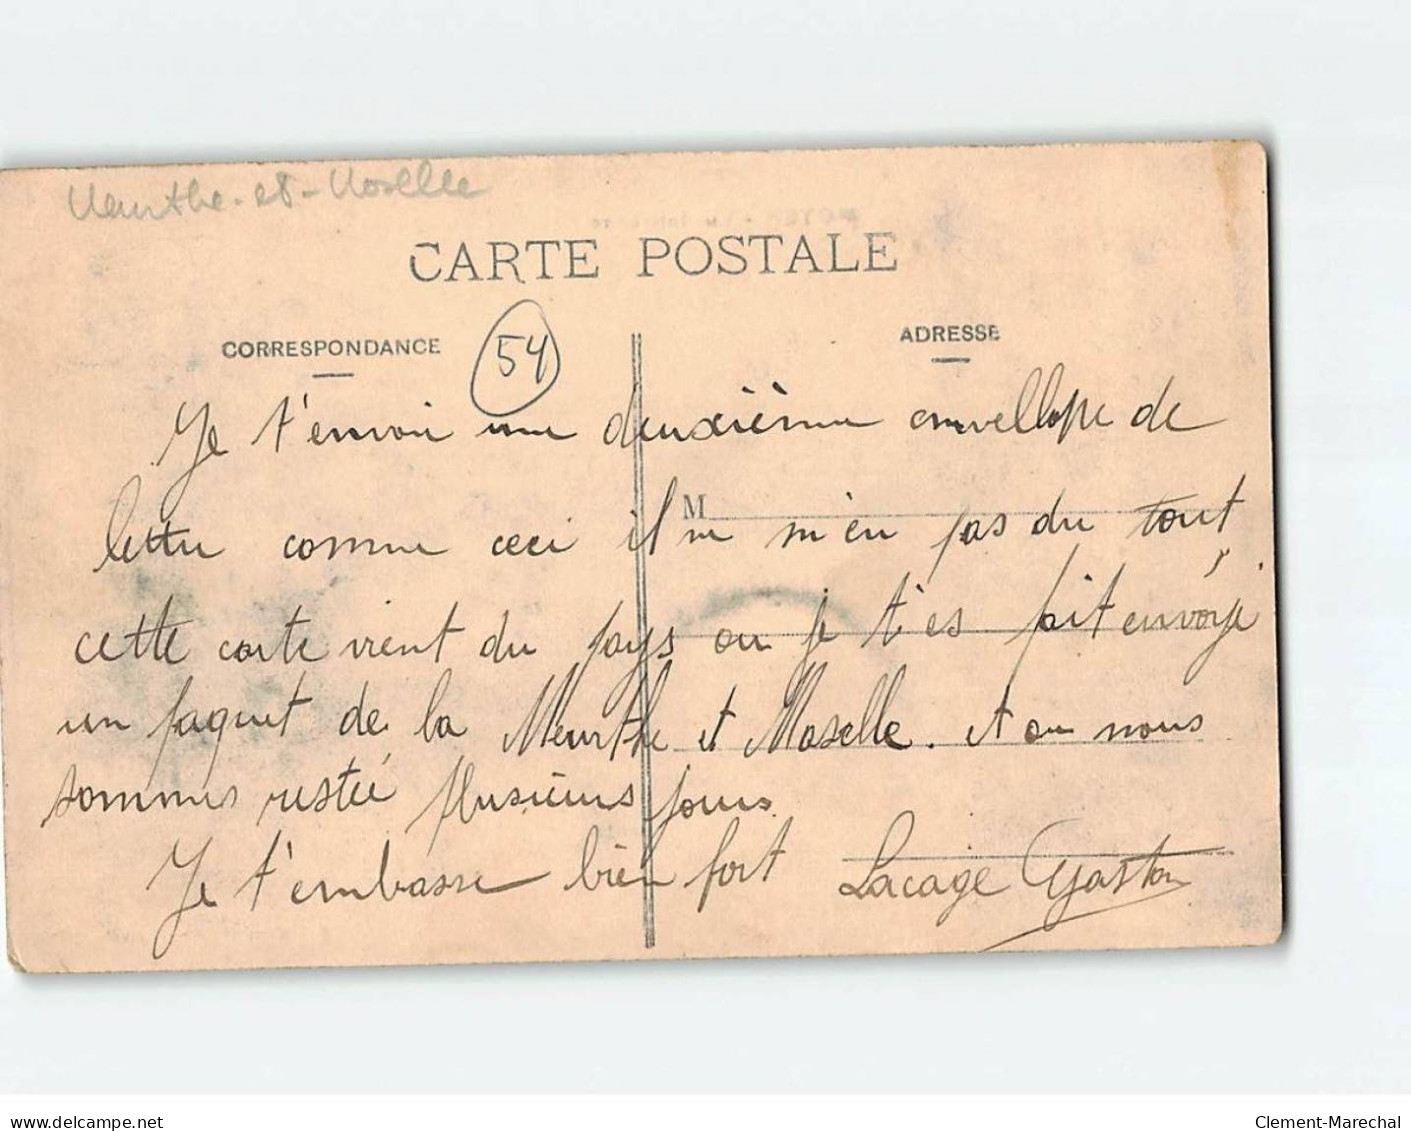 Meurthe-et-Moselle
CARTE POSTALE
CORRESPONDANCE
54
ADRESSE
Je t'envoi une deuxième envellope de
M
lettre comme ceci il ne m'en pas du tout
cette carte vient du pays ou je t'es fait envoyé
un paquet de la Meurthe et Moselle. et ou nous
sommes resteé plusieurs jours
Je t'embasse bien fort Lacage Gaston
www.delcampe.net
Clement-Marechal